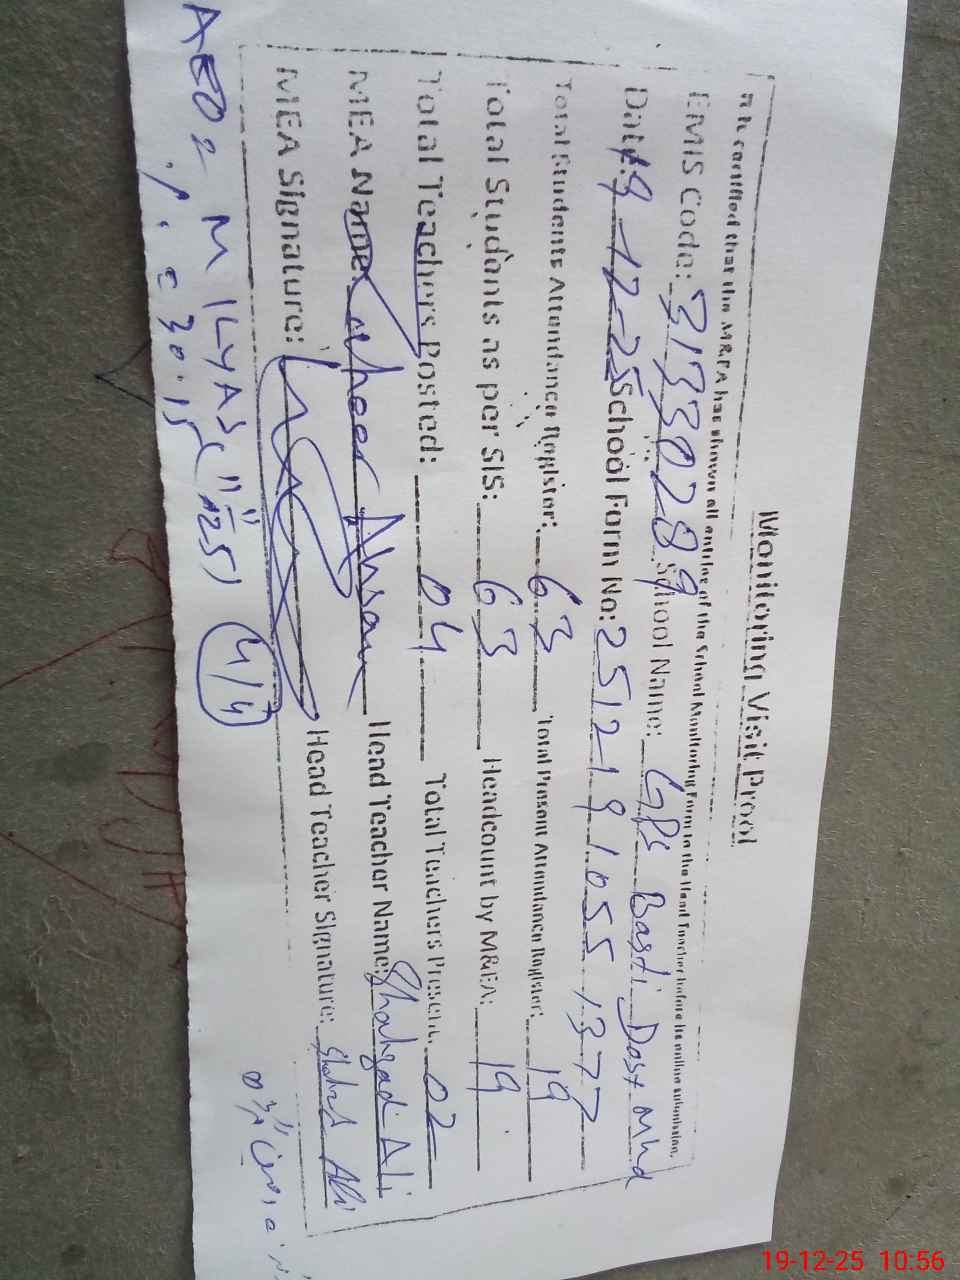 Monitoring Visit Proof
It is certified that the M&EA has shown all entries of the School Monitoring Form to the Head Teacher before its online submission.
EMIS Code: 31330289 School Name: GPS Basti Dost Mhd
Date: 19-12-25 School Form No: 2512191055 1377
Total Students Attendance Register: 63 Total Present Attendance Register: 19
Total Students as per SIS: 63 Headcount by M&EA: 19
Total Teachers Posted: 04 Total Teachers Present: 02
MEA Name: Zaheer Ahsan Head Teacher Name: Shahzad Ali
MEA Signature: Head Teacher Signature: Shahzad Ali
AEO = M ILYAS
4/4
19-12-25 10:56